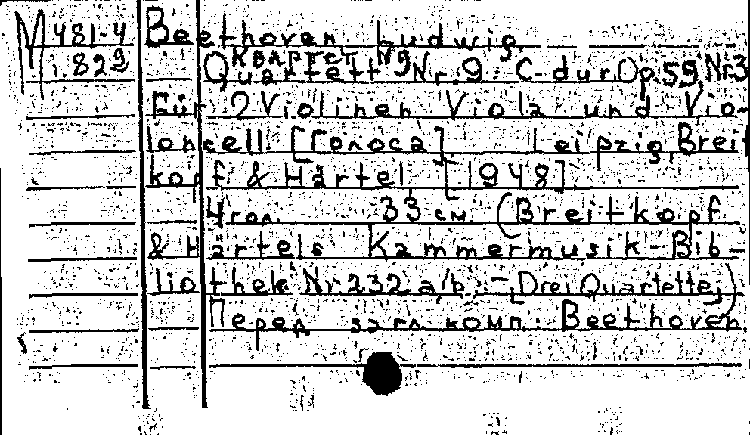 М 481-4
1.829
Beethoven, Ludwig.
Квартет №9
Quartett Nr. 9 C-dur Op. 59, Nr. 3
Für 2 Violinen, Viola und Vio-
loncell. [Голоса] Leipzig, Breit
kopf & Härtel, [1948]
4 гол. 33 см (Breitkopf
& Härtels Kammermusik-Bib-
liothek Nr 232 a/b. - [Drei Quartette])
Перед загл. комп.: Beethoven